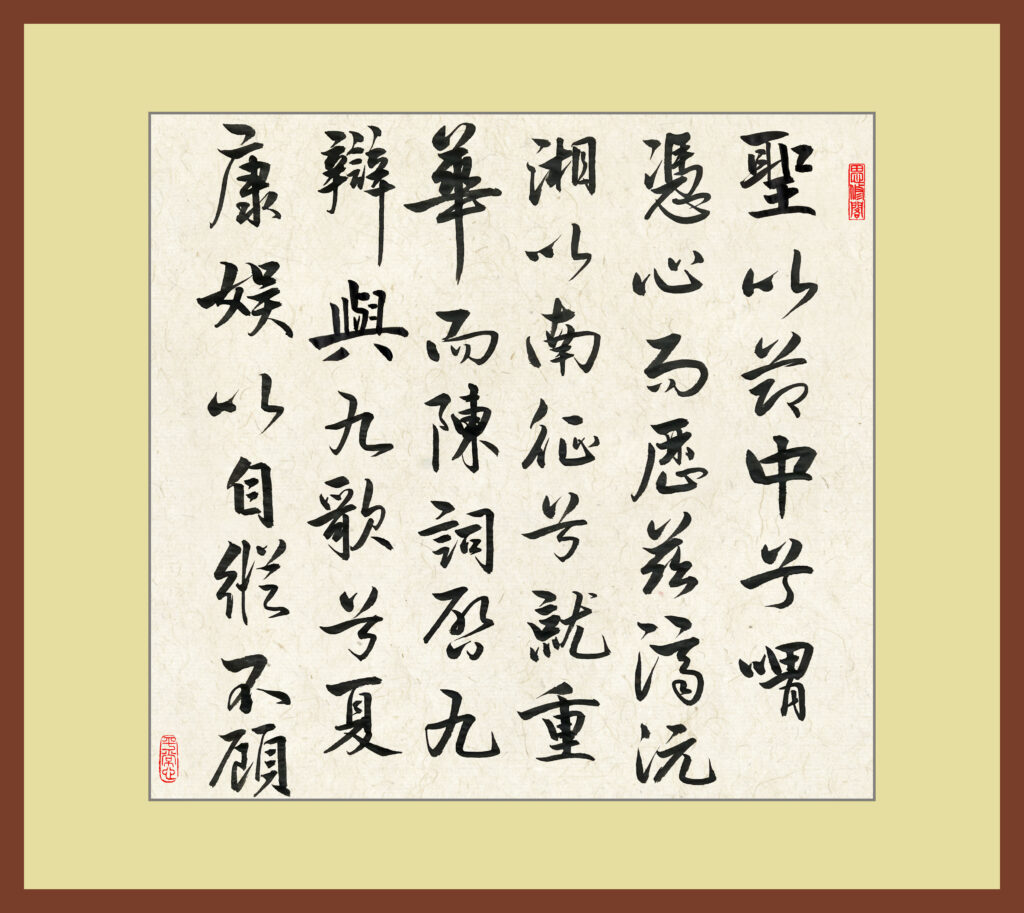 思修閣
聖以節中兮喟
憑心而歷茲濟沅
湘以南征兮就重
華而陳詞啓九
辯與九歌兮夏
康娛以自縱不顧
平常心